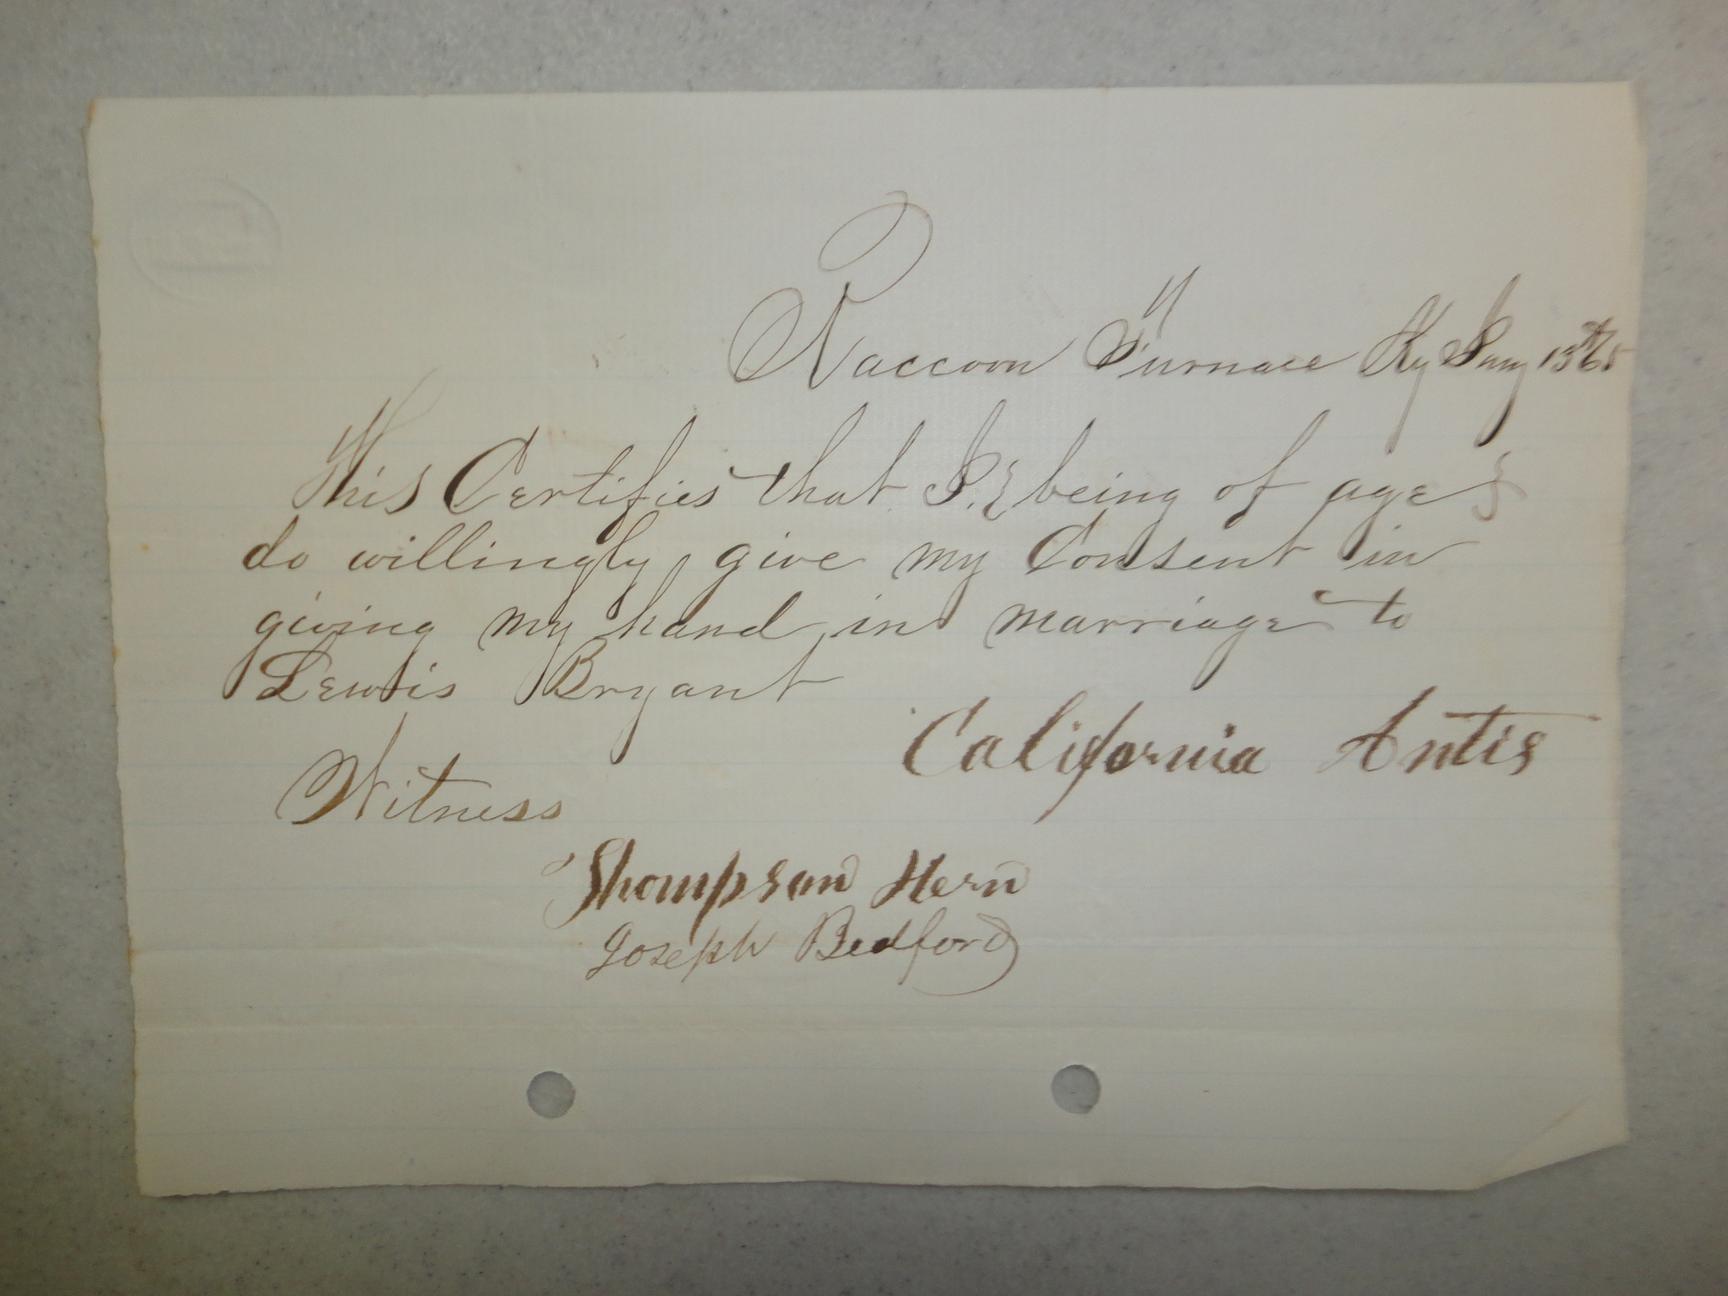 Raccoon Furnace Ky Jany 13th 65
This Certifies that I. {being of age}
do willingly give my Consent in
giving my hand in marriage to
Lewis Bryant
California Antis
Witness
Thompson Hern
Joseph Bedford